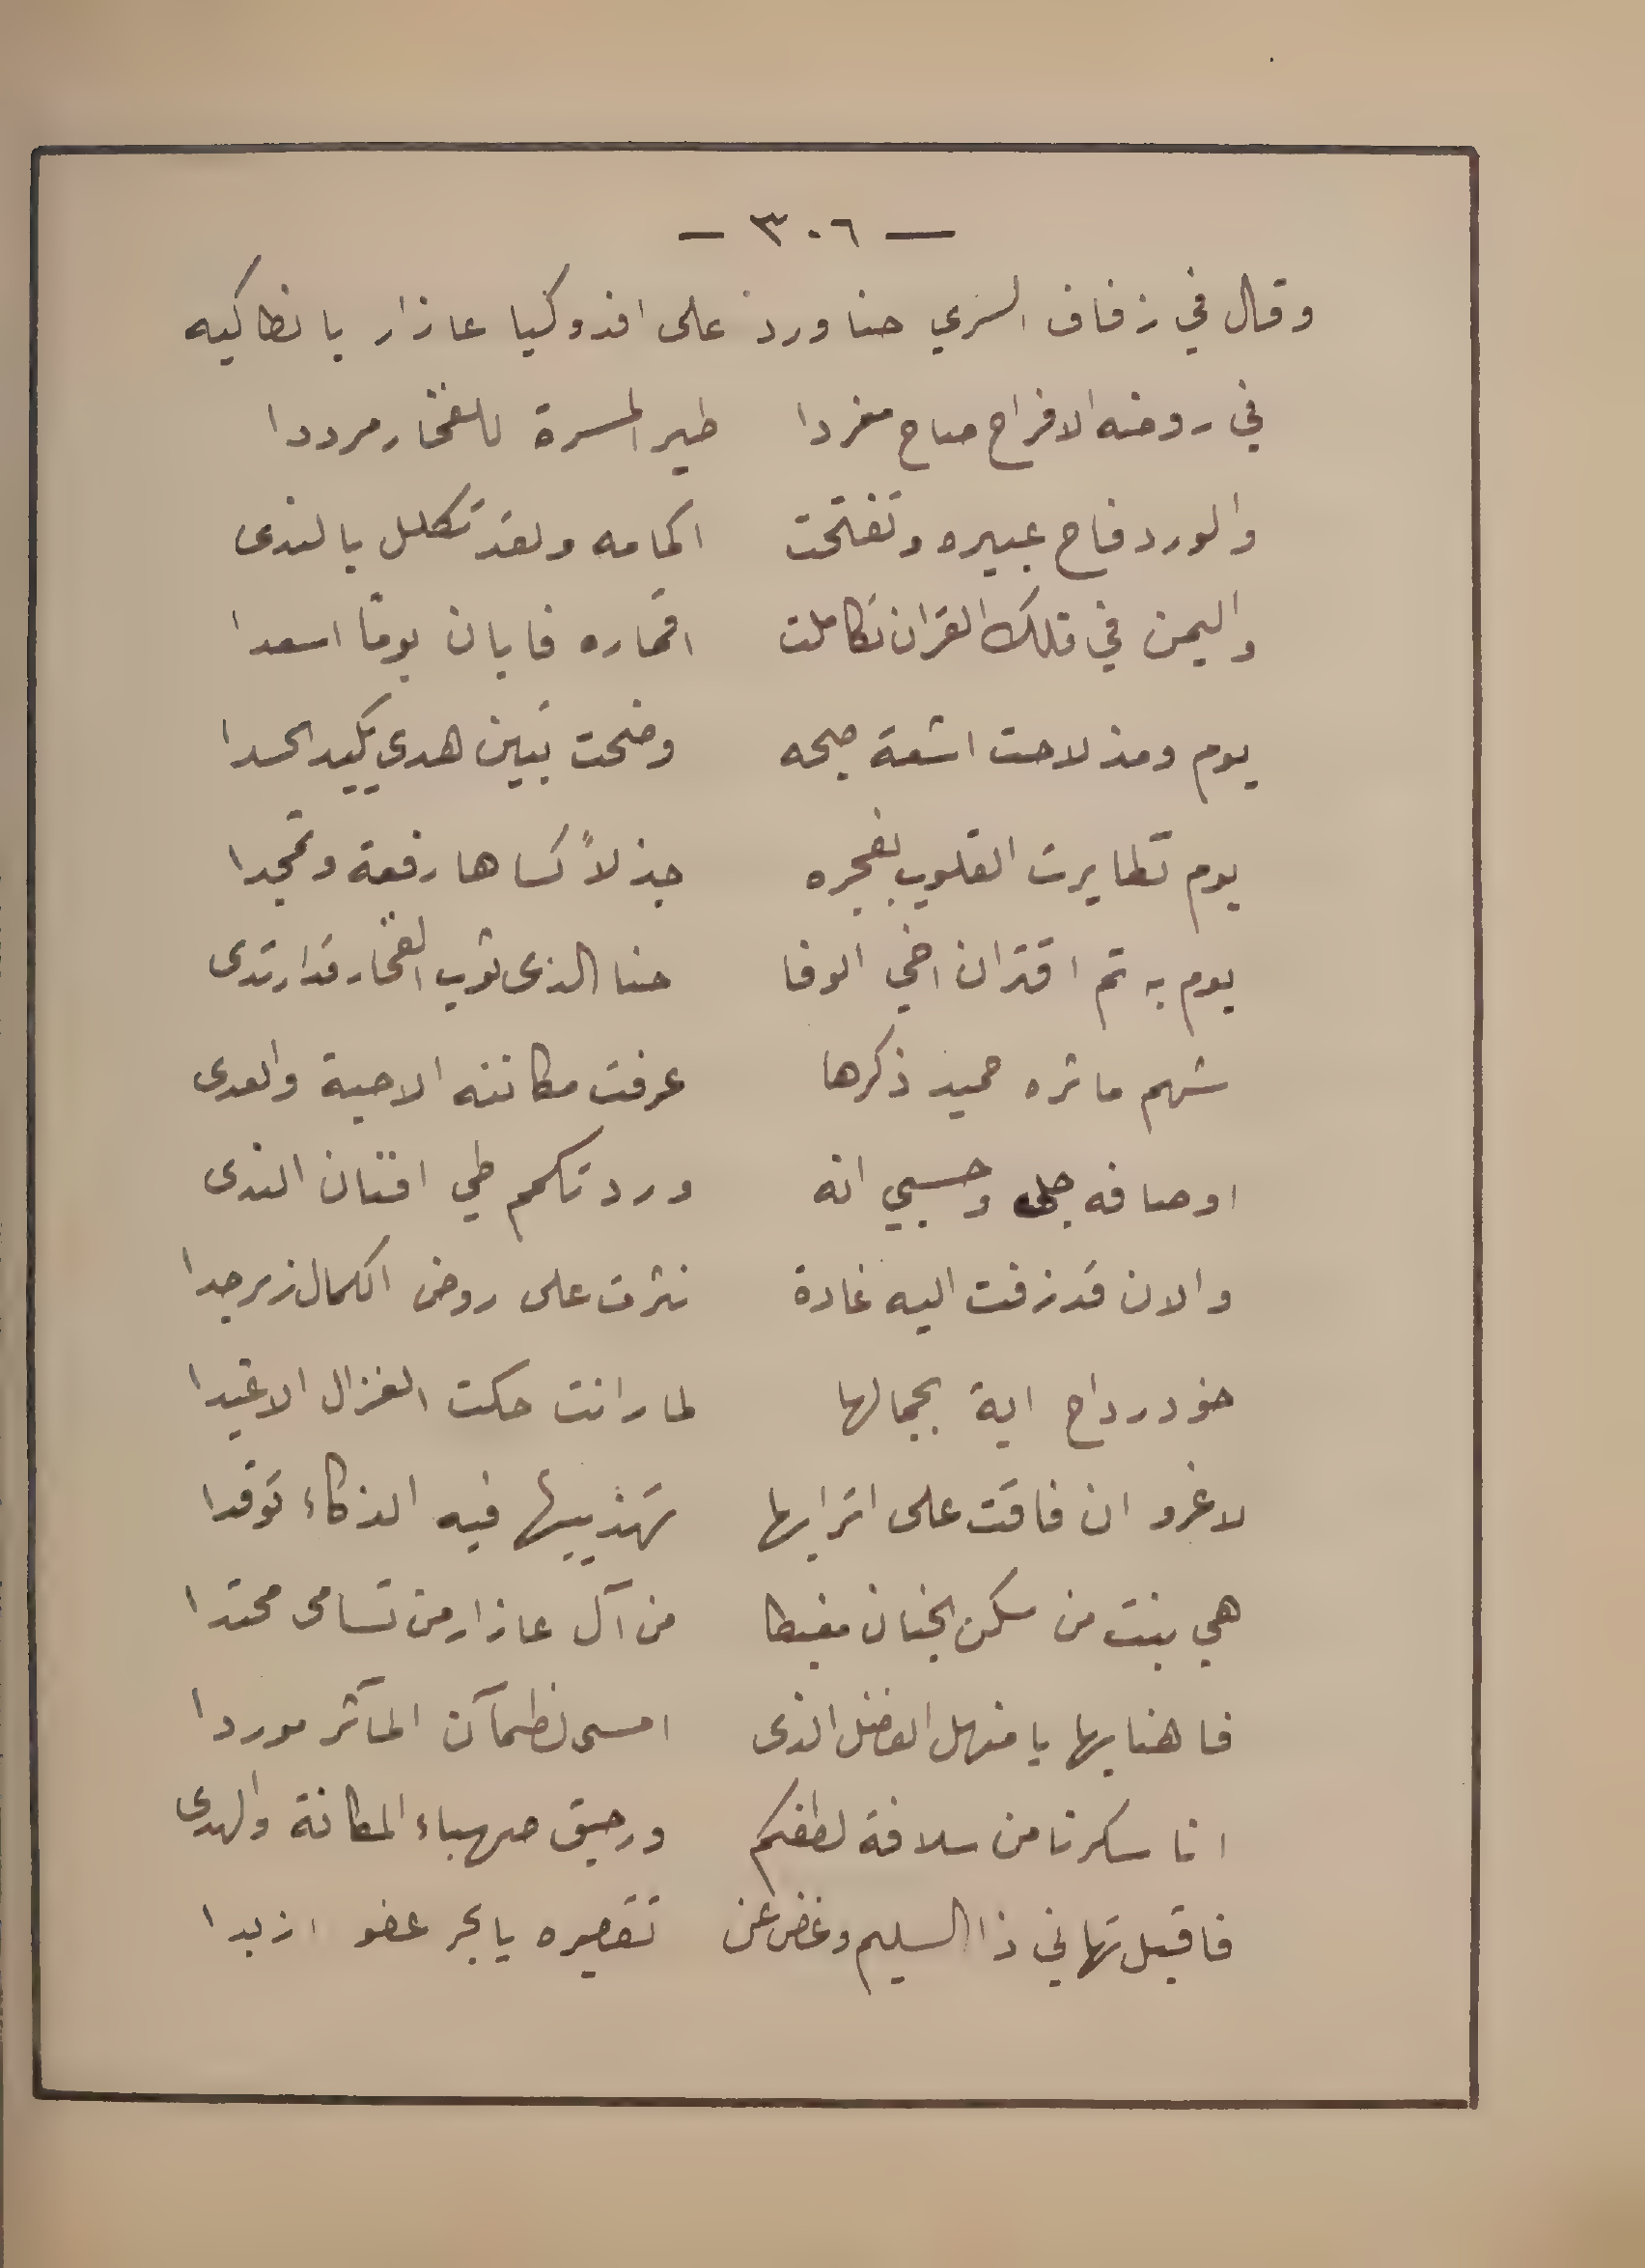 — ٣٠٦ —
وقال في زفاف السري حنا ورد على افدوكيا عازار بانطاكيه
في روضه الافراح صاح مغردا طير المسرة للفخار مرددا
والورد فاح عبيره وتفتحت اكمامه ولقد تكلل بالندى
واليمن في فلك القران تكاملت اقماره فابان يوما اسعدا
يوم ومذ لاحت اشعة صبحه وضحت تبين هدى يكيد الحسدا
يوم تطايرت القلوب بفجره جذلاً كساها رفعة وتمجدا
يوم به تم اقتران اخي الوفا حنا الذى ثوب الفخار قد ارتدى
شهم ماثره حميد ذكرها عرفت مكانته الاحبة والعدى
اوصافه جلى وحسبي انه ورد تكمم طي افنان الندى
والان قد زفت اليه غادة نثرت على روض الكمال زبرجدا
خود رداح اية بجمالها لما رانت حكت الغزال الاغيدا
لاغرو ان فاقت على اترابها تهذيبها فيه الذكاء توقدا
هي بنت من سكن الجنان مغبطا من آل عازار من تسامى محتدا
فاهنا بها يا منهل الفضل الذى امسى لظمآن المآثر موردا
انا سكرنا من سلافة لطفكم ورحيق صهباء المكانة والهدى
فاقبل تهاني ذا السليم وغض عن تقصيره يا بحر عفو ازبدا